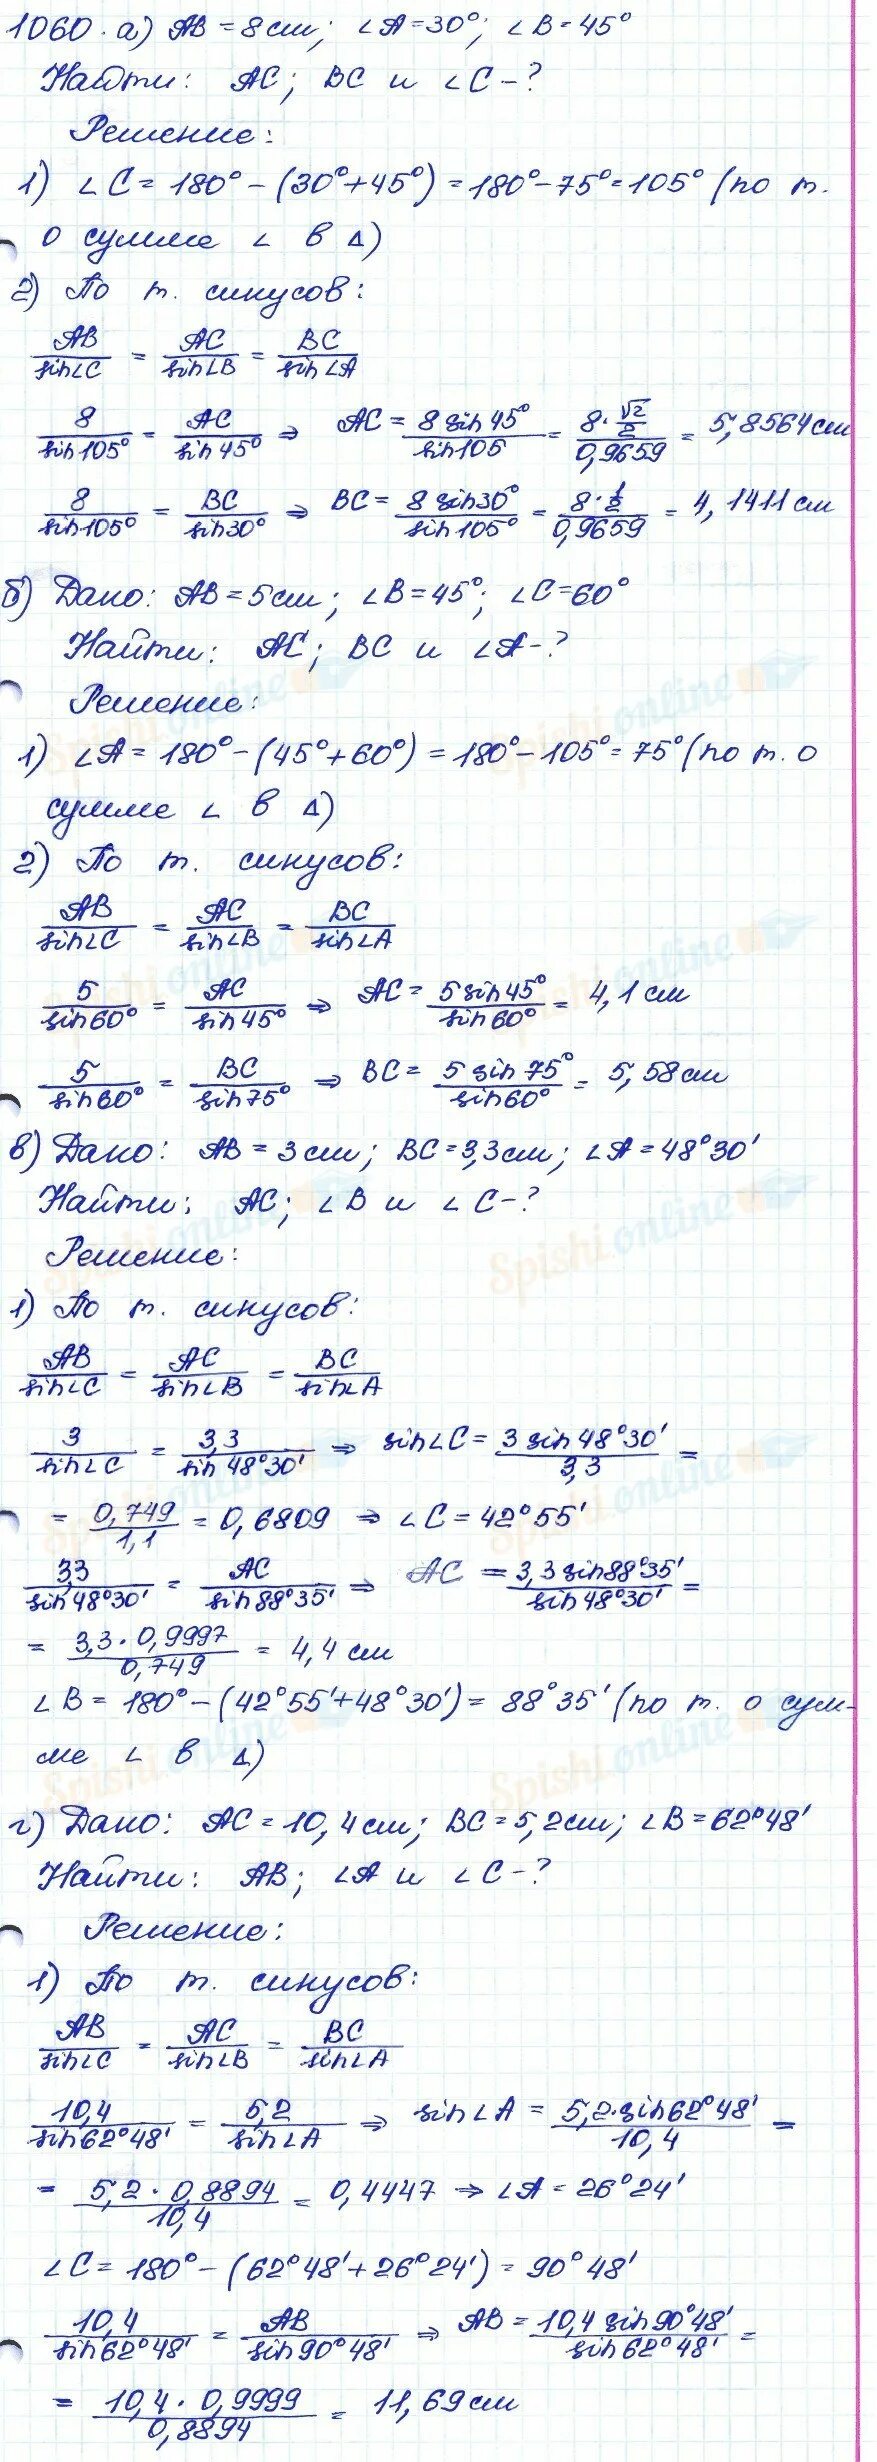 1060. а) AB = 8 см; ∠A = 30°; ∠B = 45°
Найти: AC; BC и ∠C - ?
Решение:
1) ∠C = 180° - (30° + 45°) = 180° - 75° = 105° (по т.
о сумме ∠ в Δ)
2) По т. синусов:
AB/sin∠C = AC/sin∠B = BC/sin∠A
8/sin105° = AC/sin45° ⇒ AC = 8 sin45°/sin105 = 8·√2/2/0,9659 = 5,8564 см
8/sin105° = BC/sin30° ⇒ BC = 8 sin30°/sin105° = 8·1/2/0,9659 = 4,1411 см
б) Дано: AB = 5 см; ∠B = 45°; ∠C = 60°
Найти: AC; BC и ∠A - ?
Решение:
1) ∠A = 180° - (45° + 60°) = 180° - 105° = 75° (по т. о
сумме ∠ в Δ)
2) По т. синусов:
AB/sin∠C = AC/sin∠B = BC/sin∠A
5/sin60° = AC/sin45° ⇒ AC = 5 sin45°/sin60° = 4,1 см
5/sin60° = BC/sin75° ⇒ BC = 5 sin75°/sin60° = 5,58 см
в) Дано: AB = 3 см; BC = 3,3 см; ∠A = 48°30'
Найти: AC; ∠B и ∠C - ?
Решение:
1) По т. синусов:
AB/sin∠C = AC/sin∠B = BC/sin∠A
3/sin∠C = 3,3/sin48°30' ⇒ sin∠C = 3 sin48°30'/3,3 =
= 0,749/1,1 = 0,6809 ⇒ ∠C = 42°55'
3,3/sin48°30' = AC/sin88°35' ⇒ AC = 3,3 sin88°35'/sin48°30' =
= 3,3·0,9997/0,749 = 4,4 см
∠B = 180° - (42°55' + 48°30') = 88°35' (по т. о сум-
ме ∠ в Δ)
г) Дано: AC = 10,4 см; BC = 5,2 см; ∠B = 62°48'
Найти: AB; ∠A и ∠C - ?
Решение:
1) По т. синусов:
AB/sin∠C = AC/sin∠B = BC/sin∠A
10,4/sin62°48' = 5,2/sin∠A ⇒ sin∠A = 5,2·sin62°48'/10,4 =
= 5,2·0,8894/10,4 = 0,4447 ⇒ ∠A = 26°24'
∠C = 180° - (62°48' + 26°24') = 90°48'
10,4/sin62°48' = AB/sin90°48' ⇒ AB = 10,4 sin90°48'/sin62°48' =
= 10,4·0,9999/0,8894 = 11,69 см
Spishi.online